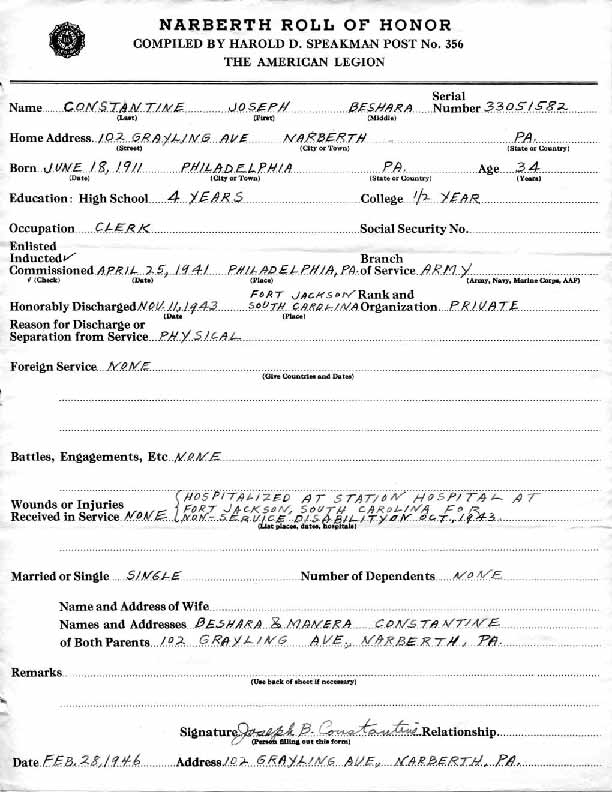 NARBERTH ROLL OF HONOR
COMPILED BY HAROLD D. SPEAKMAN POST No. 356
THE AMERICAN LEGION
Name CONSTANTINE JOSEPH BESHARA Serial Number 33051582
(Last) (First) (Middle)
Home Address 102 GRAYLING AVE NARBERTH PA.
(Street) (City or Town) (State or Country)
Born JUNE 18, 1911 PHILADELPHIA PA. Age 34
(Date) (City or Town) (State or Country) (Years)
Education: High School 4 YEARS College 1/2 YEAR
Occupation CLERK Social Security No.
Enlisted
Inducted ✓ Branch
Commissioned APRIL 25, 1941 PHILADELPHIA, PA. of Service ARMY
(Check) (Date) (Place) (Army, Navy, Marine Corps, AAF)
FORT JACKSON Rank and
Honorably Discharged NOV. 11, 1943 SOUTH CAROLINA Organization PRIVATE
(Date (Place)
Reason for Discharge or
Separation from Service PHYSICAL
Foreign Service NONE
(Give Countries and Dates)
Battles, Engagements, Etc NONE
HOSPITALIZED AT STATION HOSPITAL AT
Wounds or Injuries FORT JACKSON, SOUTH CAROLINA FOR
Received in Service NONE NON-SERVICE DISABILITY ON OCT., 1943.
(List places, dates, hospitals)
Married or Single SINGLE Number of Dependents NONE
Name and Address of Wife
Names and Addresses BESHARA & MANERA CONSTANTINE
of Both Parents 102 GRAYLING AVE., NARBERTH, PA.
Remarks
(Use back of sheet if necessary)
Signature Joseph B. Constantine Relationship
(Person filling out this form)
Date FEB. 28, 1946 Address 102 GRAYLING AVE, NARBERTH, PA.